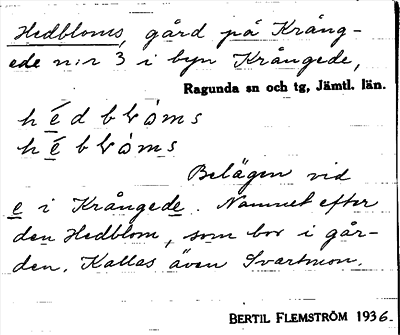 Hedbloms, gård på Krång-
ede n:r 3 i byn Krångede,
Ragunda sn och tg, Jämtl. län.
hédblòms
héblòms
Belägen vid
e i Krångede. Namnet efter
den Hedblom, som bor i går-
den. Kallas även Svartmon.
BERTIL FLEMSTRÖM 1936.